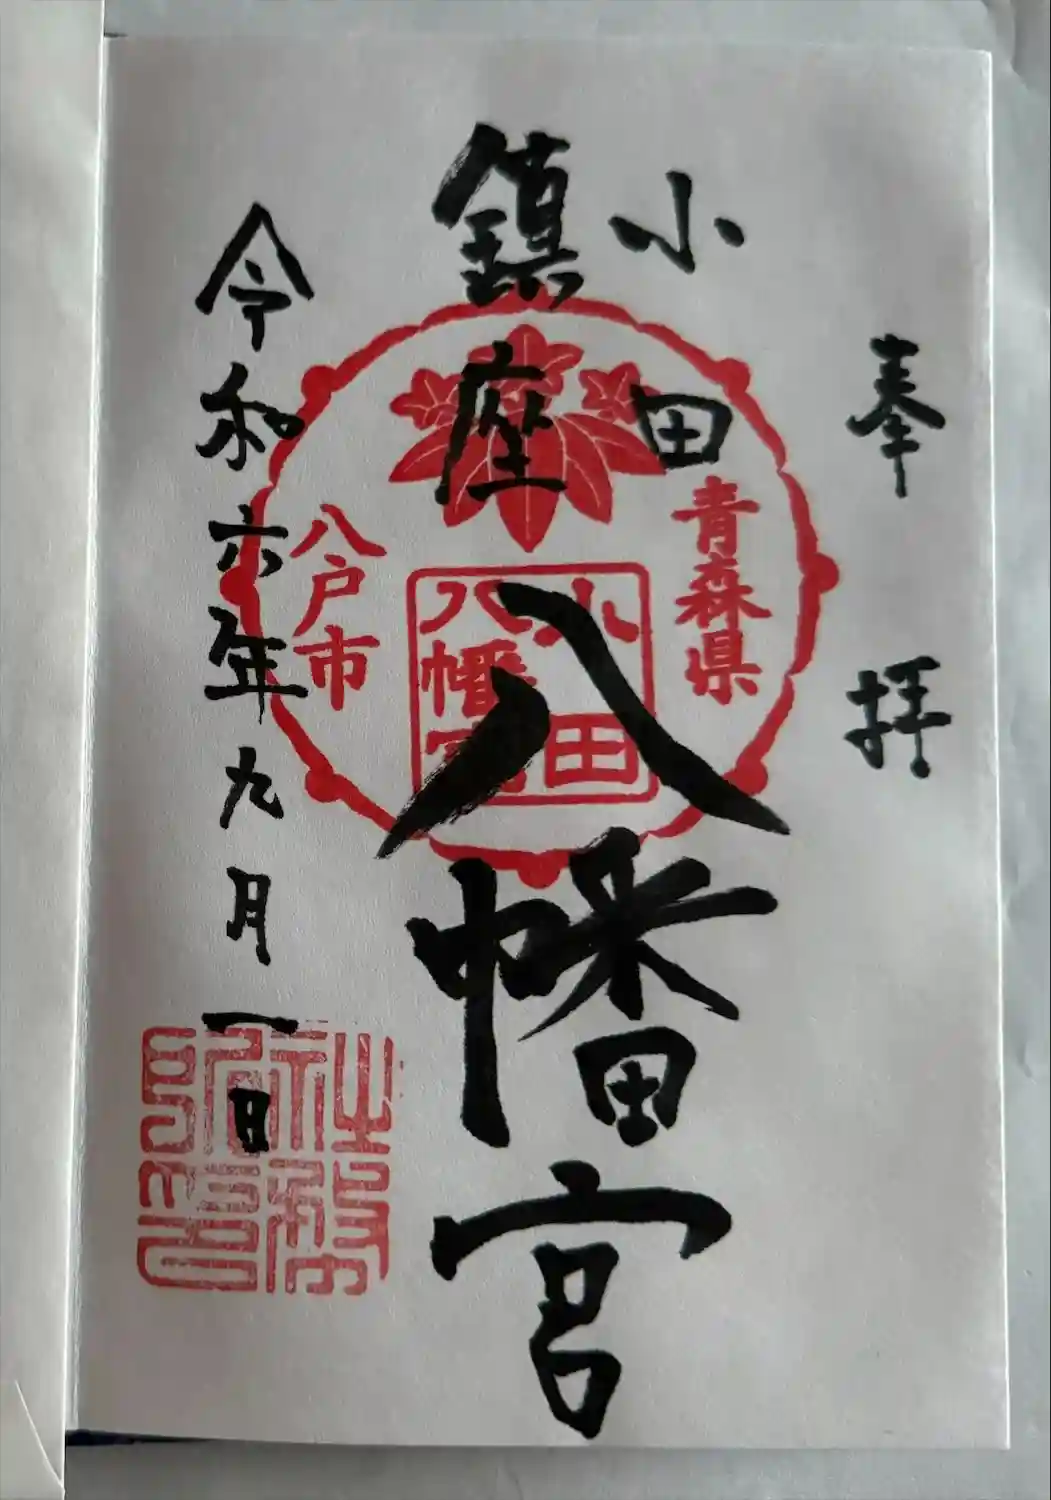 奉拝
小田
鎮座
八幡宮
令和六年九月一日
青森県
八戸市
小田
八幡宮
社務